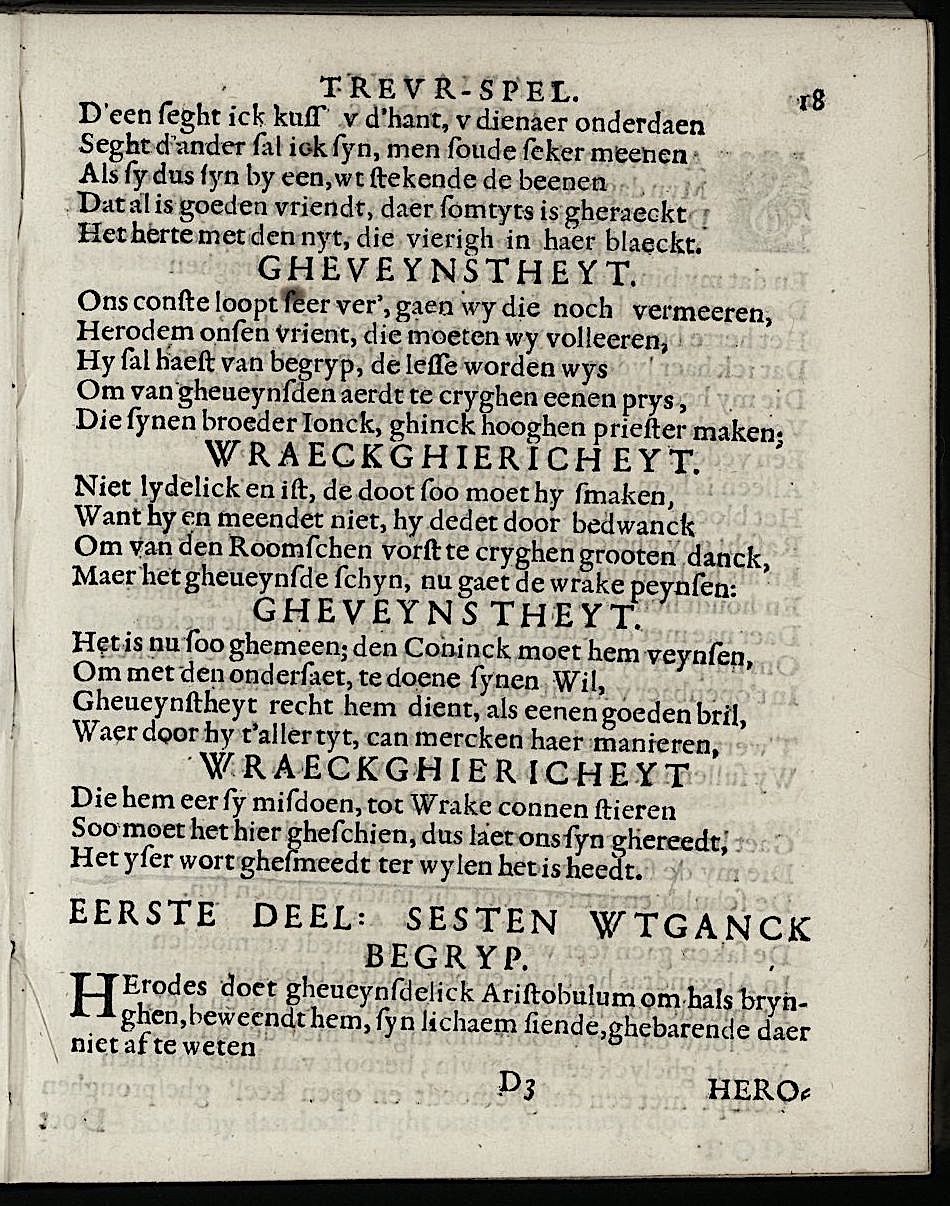 TREVR-SPEL. 18
D'een ſeght ick kuſſ v d'hant, v dienaer onderdaen
Seght d'ander ſal ick ſyn, men ſoude ſeker meenen
Als ſy dus ſyn by een, wt ſtekende de beenen
Dat al is goeden vriendt, daer ſomtyts is gheraeckt
Het herte met den nyt, die vierigh in haer blaeckt.
GHEVEYNSTHEYT.
Ons conſte loopt ſeer ver', gaen wy die noch vermeeren,
Herodem onſen vrient, die moeten wy volleeren,
Hy ſal haeſt van begryp, de leſſe worden wys
Om van gheueynſden aerdt te cryghen eenen prys,
Die ſynen broeder Ionck, ghinck hooghen prieſter maken;
WRAECKGHIERICHEYT.
Niet lydelick en iſt, de doot ſoo moet hy ſmaken,
Want hy en meendet niet, hy dedet door bedwanck
Om van den Roomſchen vorſt te cryghen grooten danck,
Maer het gheueynſde ſchyn, nu gaet de wrake peynſen:
GHEVEYNSTHEYT.
Het is nu ſoo ghemeen; den Coninck moet hem veynſen,
Om met den onderſaet, te doene ſynen Wil,
Gheueynſtheyt recht hem dient, als eenen goeden bril,
Waer door hy t'aller tyt, can mercken haer manieren,
WRAECKGHIERICHEYT
Die hem eer ſy miſdoen, tot Wrake connen ſtieren
Soo moet het hier gheſchien, dus laet ons ſyn ghereedt,
Het yſer wort gheſmeedt ter wylen het is heedt.
EERSTE DEEL: SESTEN WTGANCK
BEGRYP.
HErodes doet gheueynſdelick Ariſtobulum om hals bryn-
ghen, beweendt hem, ſyn lichaem ſiende, ghebarende daer
niet af te weten
D3 HERO-